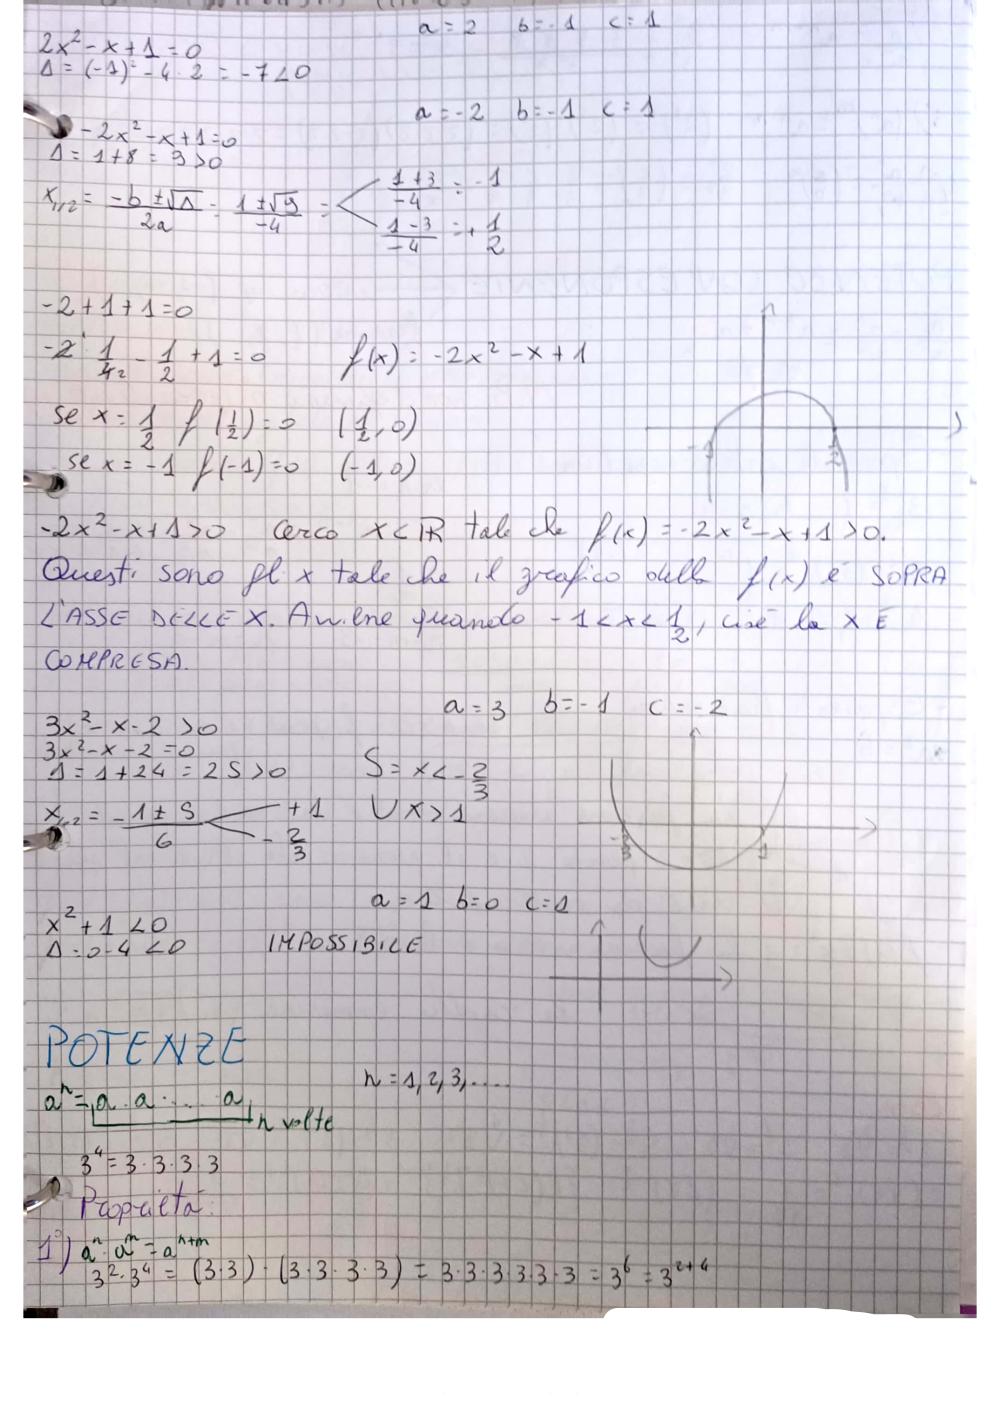 a = 2 b = -1 c = 1
2x² - x + 1 = 0
Δ = (-1)² - 4 · 2 = -7 < 0
a = -2 b = -1 c = 1
-2x² - x + 1 = 0
Δ = 1 + 8 = 9 > 0
x₁,₂ = (-b ± √Δ)/2a = (1 ± √9)/-4 = (1 + 3)/-4 = -1
(1 - 3)/-4 = + 1/2
-2 + 1 + 1 = 0
-2 · 1/4₂ - 1/2 + 1 = 0 f(x) = -2x² - x + 1
se x = 1/2 f(1/2) = 0 (1/2, 0)
se x = -1 f(-1) = 0 (-1, 0)
-1 1/2
-2x² - x + 1 > 0 Cerco x < ℝ tale che f(x) = -2x² - x + 1 > 0.
Questi sono gl x tale che il grafico della f(x) è SOPRA
L'ASSE DELLE X. Avviene quando -1 < x < 1/2, cioè la x È
COMPRESA.
a = 3 b = -1 c = -2
3x² - x - 2 > 0
3x² - x - 2 = 0
Δ = 1 + 24 = 25 > 0 S = x < -2/3
x₁,₂ = -(1 ± 5)/6 +1 ∪ x > 1
-2/3
-2/3 1
a = 1 b = 0 c = 1
x² + 1 < 0
Δ = 0 - 4 < 0 IMPOSSIBILE
POTENZE
n = 1, 2, 3, ....
aⁿ = a · a · ... · a n volte
3⁴ = 3 · 3 · 3 · 3
Proprietà:
1°) aⁿ · aᵐ = aⁿ⁺ᵐ
3² · 3⁴ = (3·3) · (3·3·3·3) = 3·3·3·3·3·3 = 3⁶ = 3²⁺⁴